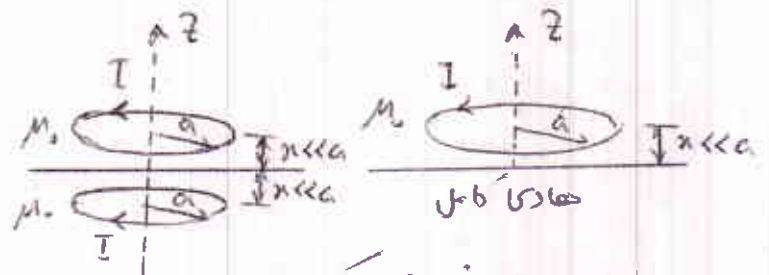 Z
I
μ₀
a
x<<a
x<<a
μ₀
a
I
Z
I
μ₀
a
x<<a
هادی کامل